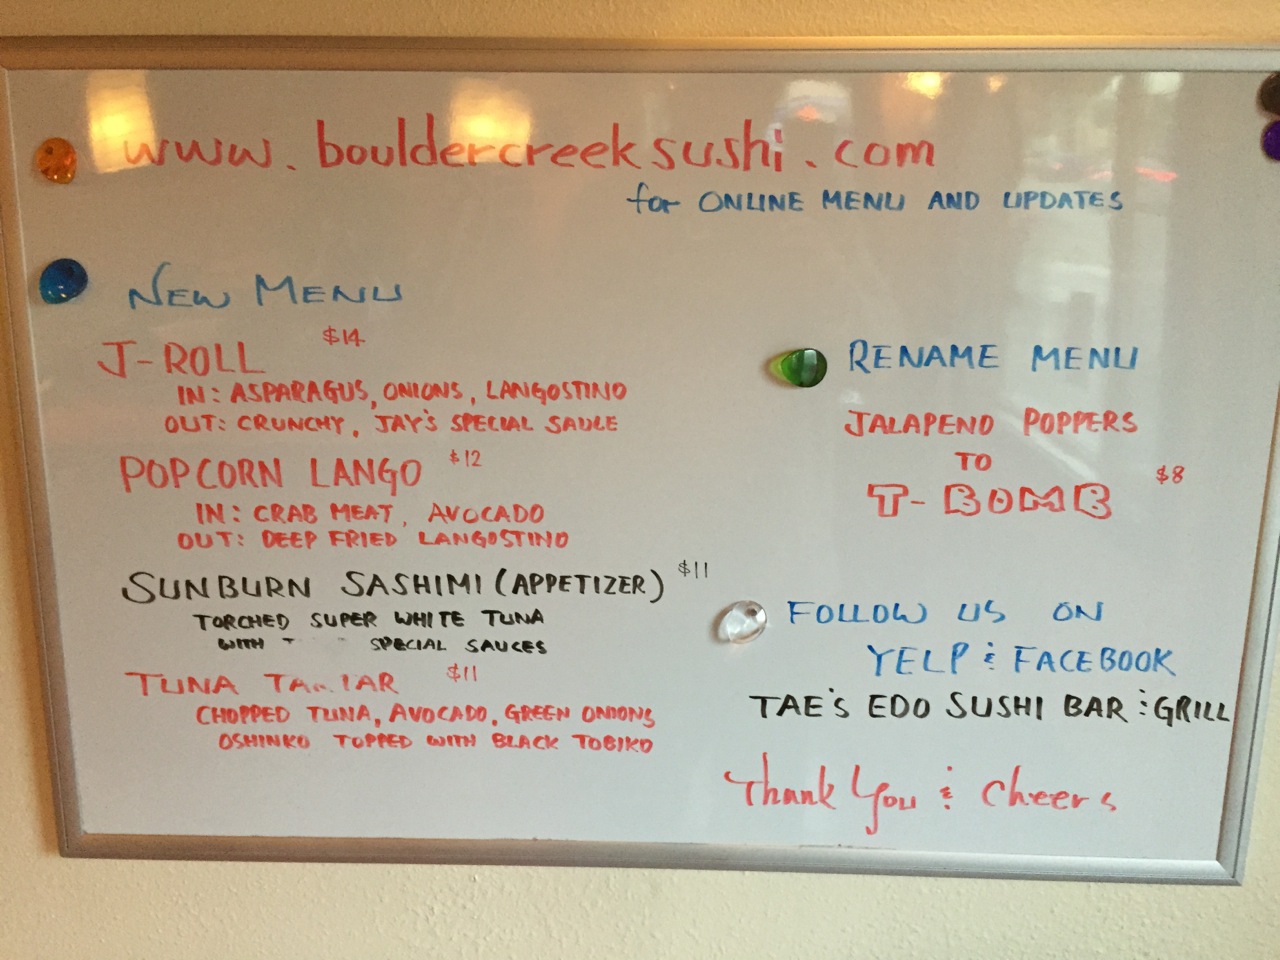 www.bouldercreeksushi.com
for ONLINE MENU AND UPDATES
NEW MENU
J-ROLL $14
IN: ASPARAGUS, ONIONS, LANGOSTINO
OUT: CRUNCHY, JAY'S SPECIAL SAUCE
POPCORN LANGO $12
IN: CRAB MEAT, AVOCADO
OUT: DEEP FRIED LANGOSTINO
SUNBURN SASHIMI (APPETIZER) $11
TORCHED SUPER WHITE TUNA
WITH SPECIAL SAUCES
TUNA $11
CHOPPED TUNA, AVOCADO, GREEN ONIONS
OSHINKO TOPPED WITH BLACK TOBIKO
RENAME MENU
JALAPENO POPPERS
TO
T-BOMB $8
FOLLOW US ON
YELP & FACEBOOK
TAE'S EDO SUSHI BAR & GRILL
Thank You & Cheers